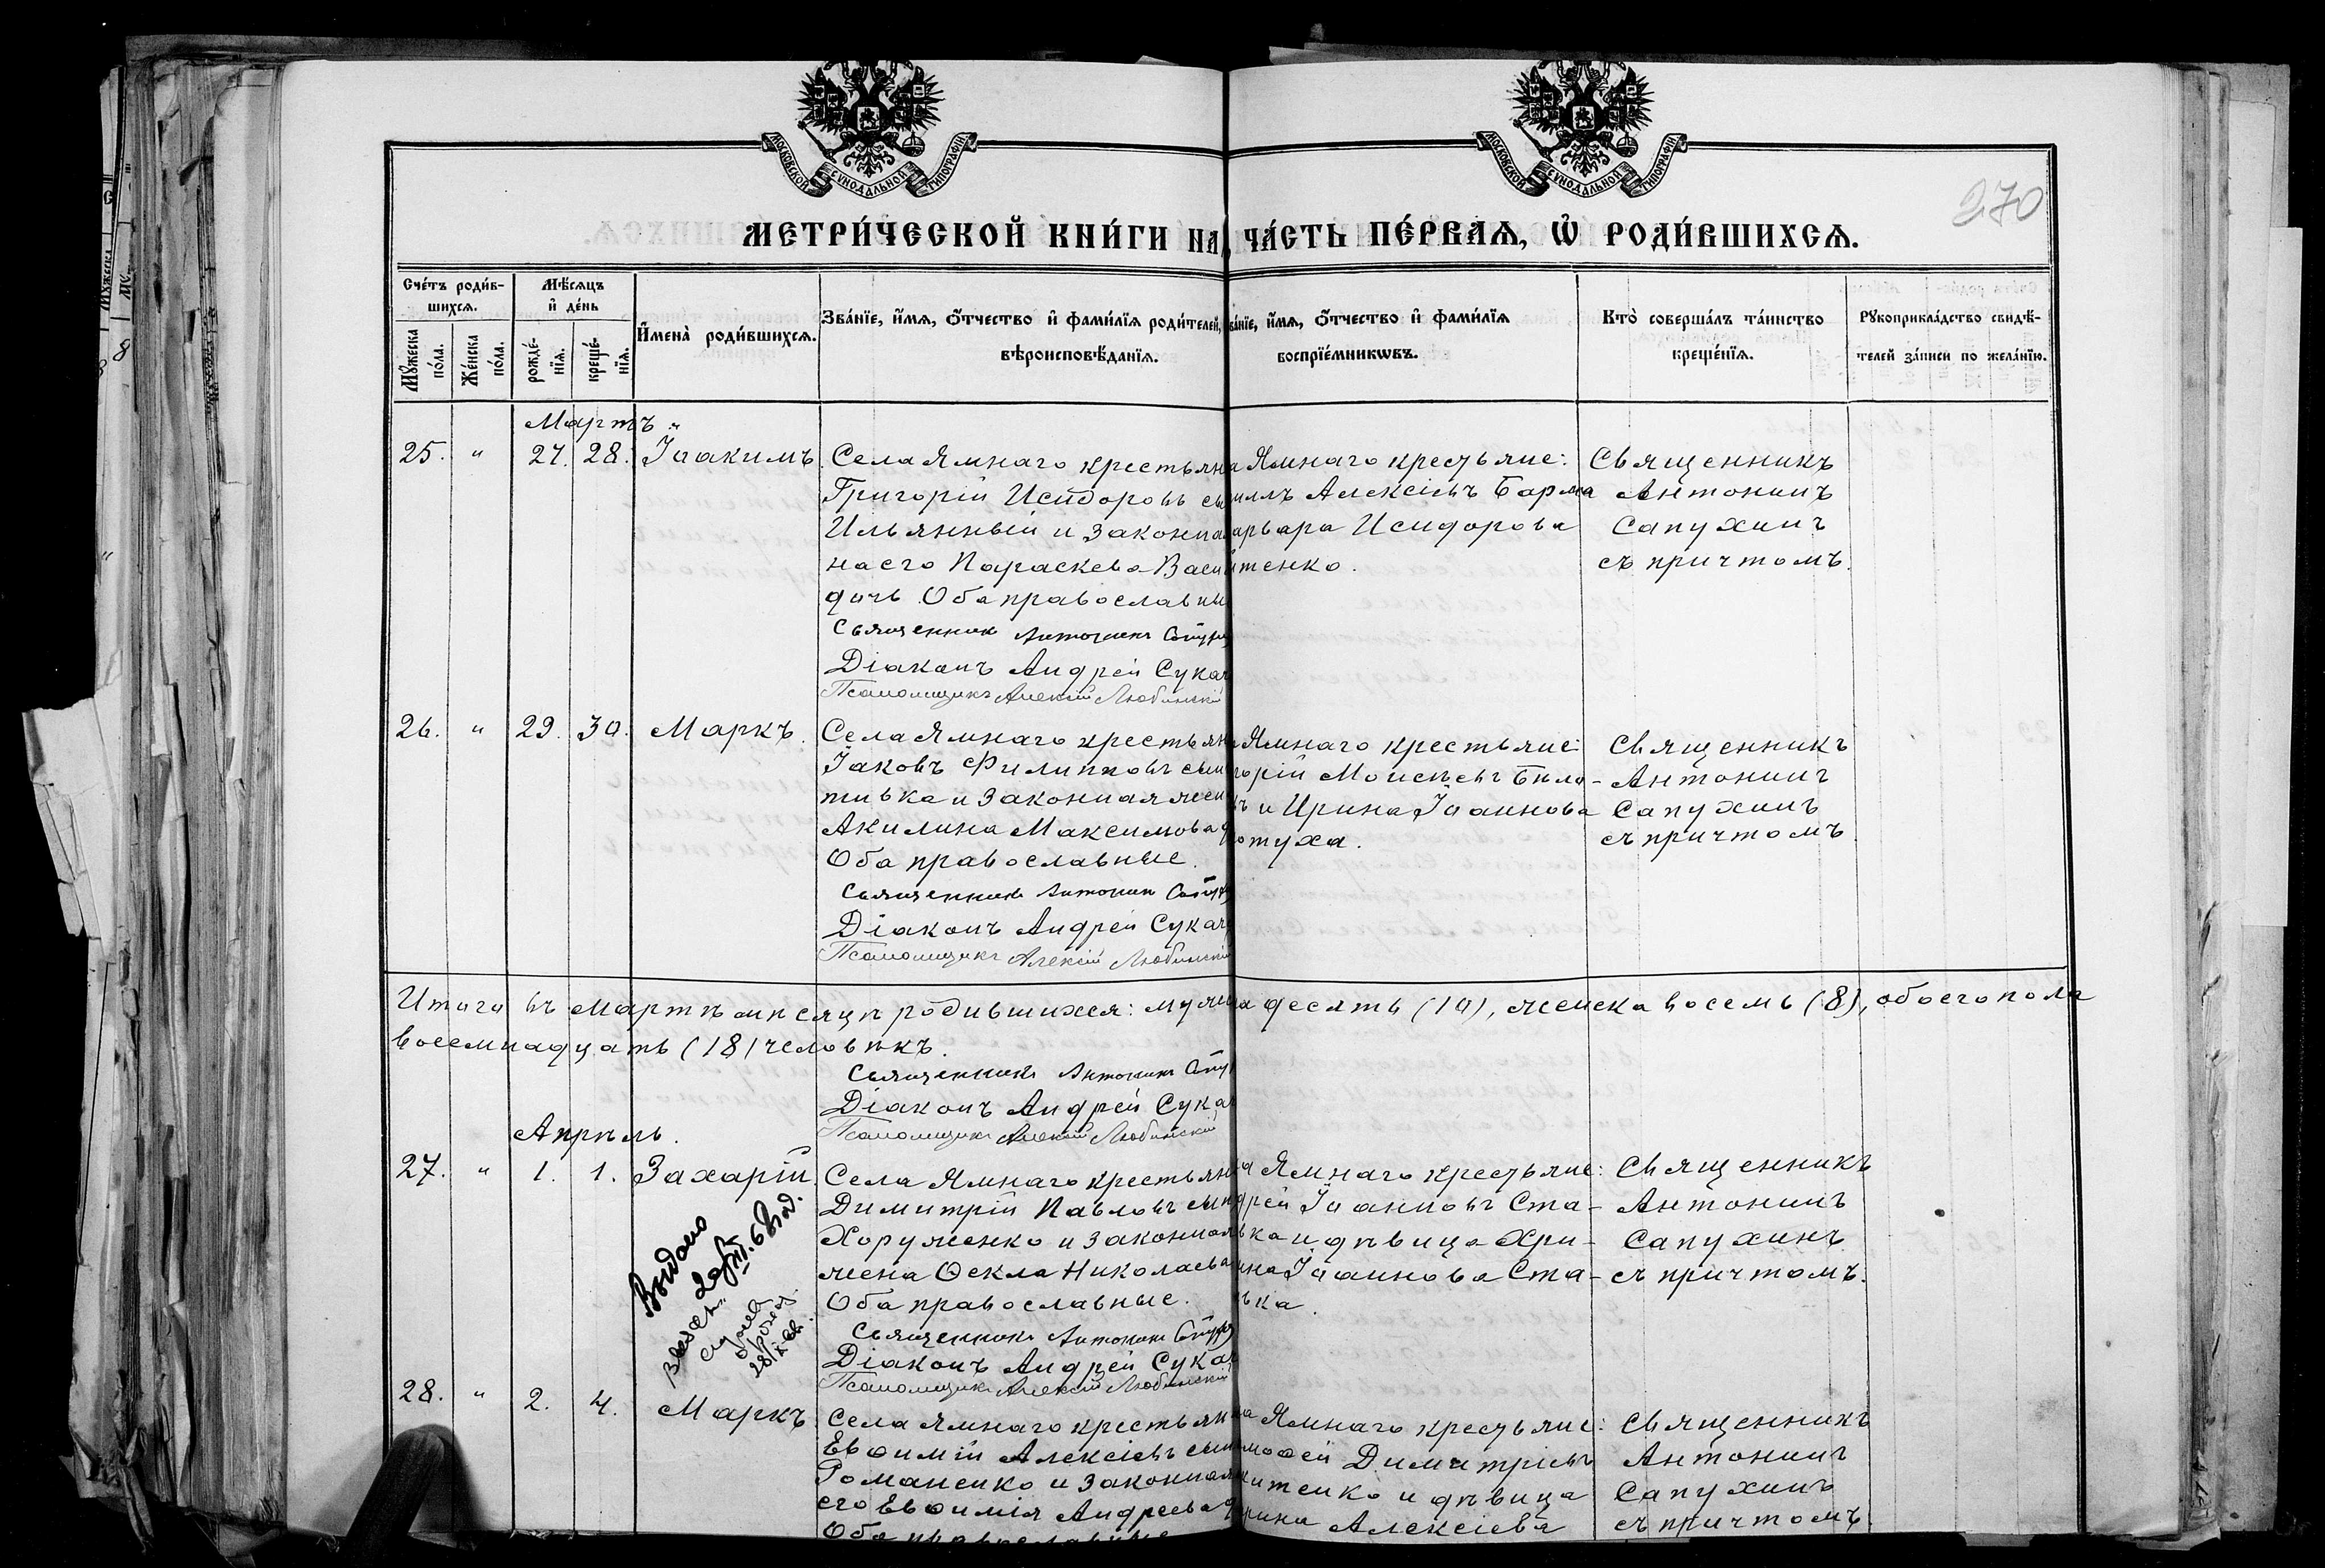 МОСКОВСКОЙ СѴНОДАЛЬНОЙ ТИПОГРАФІИ
МОСКОВСКОЙ СѴНОДАЛЬНОЙ ТИПОГРАФІИ
270
МЕТРИ́ЧЕСКОЙ КНИ́ГИ НА ЧА́СТЬ ПЕ́РВАѦ, Ѡ҆ РОДИ́ВШИХСѦ.
Сче́тъ роди́в-
шихсѧ.
Мꙋ́жеска по́ла.
Же́нска по́ла.
Мѣ́сѧцъ
и҆ де́нь
рожде́-нїѧ.
креще́-нїѧ.
И҆мена̀ роди́вшихсѧ.
Зва́нїе, и҆́мѧ, о҆́тчество и҆ фами́лїѧ роди́телей,
вѣроисповѣ́данїѧ.
ва́нїе, и҆́мѧ, о҆́тчество и҆ фами́лїѧ
воспрїе́мникѡвъ.
Кто̀ соверша́лъ та́инство
креще́нїѧ.
Рꙋкоприкла́дство свидѣ́-
телей за́писи по жела́нїю.
Мартъ
25. " 27. 28. Іоакимъ.
Села Ямнаго крестьян
Григорій Исидоровъ сы
Ильянный и законна
на его Параскева Васи
дочь. Оба православны
Священник Антонин
Діаконъ Андрей Сукач
Псаломщикъ Алексій Любинскій
Ямнаго крестьяне:
иилъ Алексіевъ Барма
арвара Исидорова
тенко.
Священникъ
Антонинъ
Сапухинъ
съ причтомъ.
26. " 29. 30. Маркъ.
Села Ямнаго крестьян
Іаковъ Филипповъ сын
тивка и законная жен
Акилина Максимова д
Оба православные.
Священник Антонин
Діаконъ Андрей Сукач
Псаломщикъ Алексій Любинскій
Ямнаго крестьяне:
горій Моисеевъ Била-
въ и Ирина Іоаннова
отуха.
Священникъ
Антонинъ
Сапухинъ
съ причтомъ
Итого въ мартѣ мѣсяцѣ родившихся: муж а десять (10), женска восемь (8), обоего пола
восемнадцать (18) человѣкъ.
Священник Антонин
Діаконъ Андрей Сука
Псаломщикъ Алексій Любинскій
Апрѣль.
27. " 1. 1. Захарій.
Выдано
Села Ямнаго крестьян
Димитрій Павловъ сын
Хоруженко и законная
жена Ѳекла Николаева
Оба православные.
Священник Антонин
Діаконъ Андрей Сукач
Псаломщикъ Алексій Любинскій
а Ямнаго крестьяне:
дрей Іоанновъ Ста-
вка и дѣвица Хри-
ина Іоаннова Ста-
вка.
Священникъ
Антонинъ
Сапухинъ
съ причтомъ.
28. " 2. 4. Маркъ
Села Ямнаго крестьян
Евѳимій Алексіевъ сын
Романенко и законная
его Евѳимія Андреева д
Оба православные
на Ямнаго крестьяне:
моѳей Димитріевъ
итенко и дѣвица
рина Алексіева
Священникъ
Антонинъ
Сапухинъ
съ причтомъ.